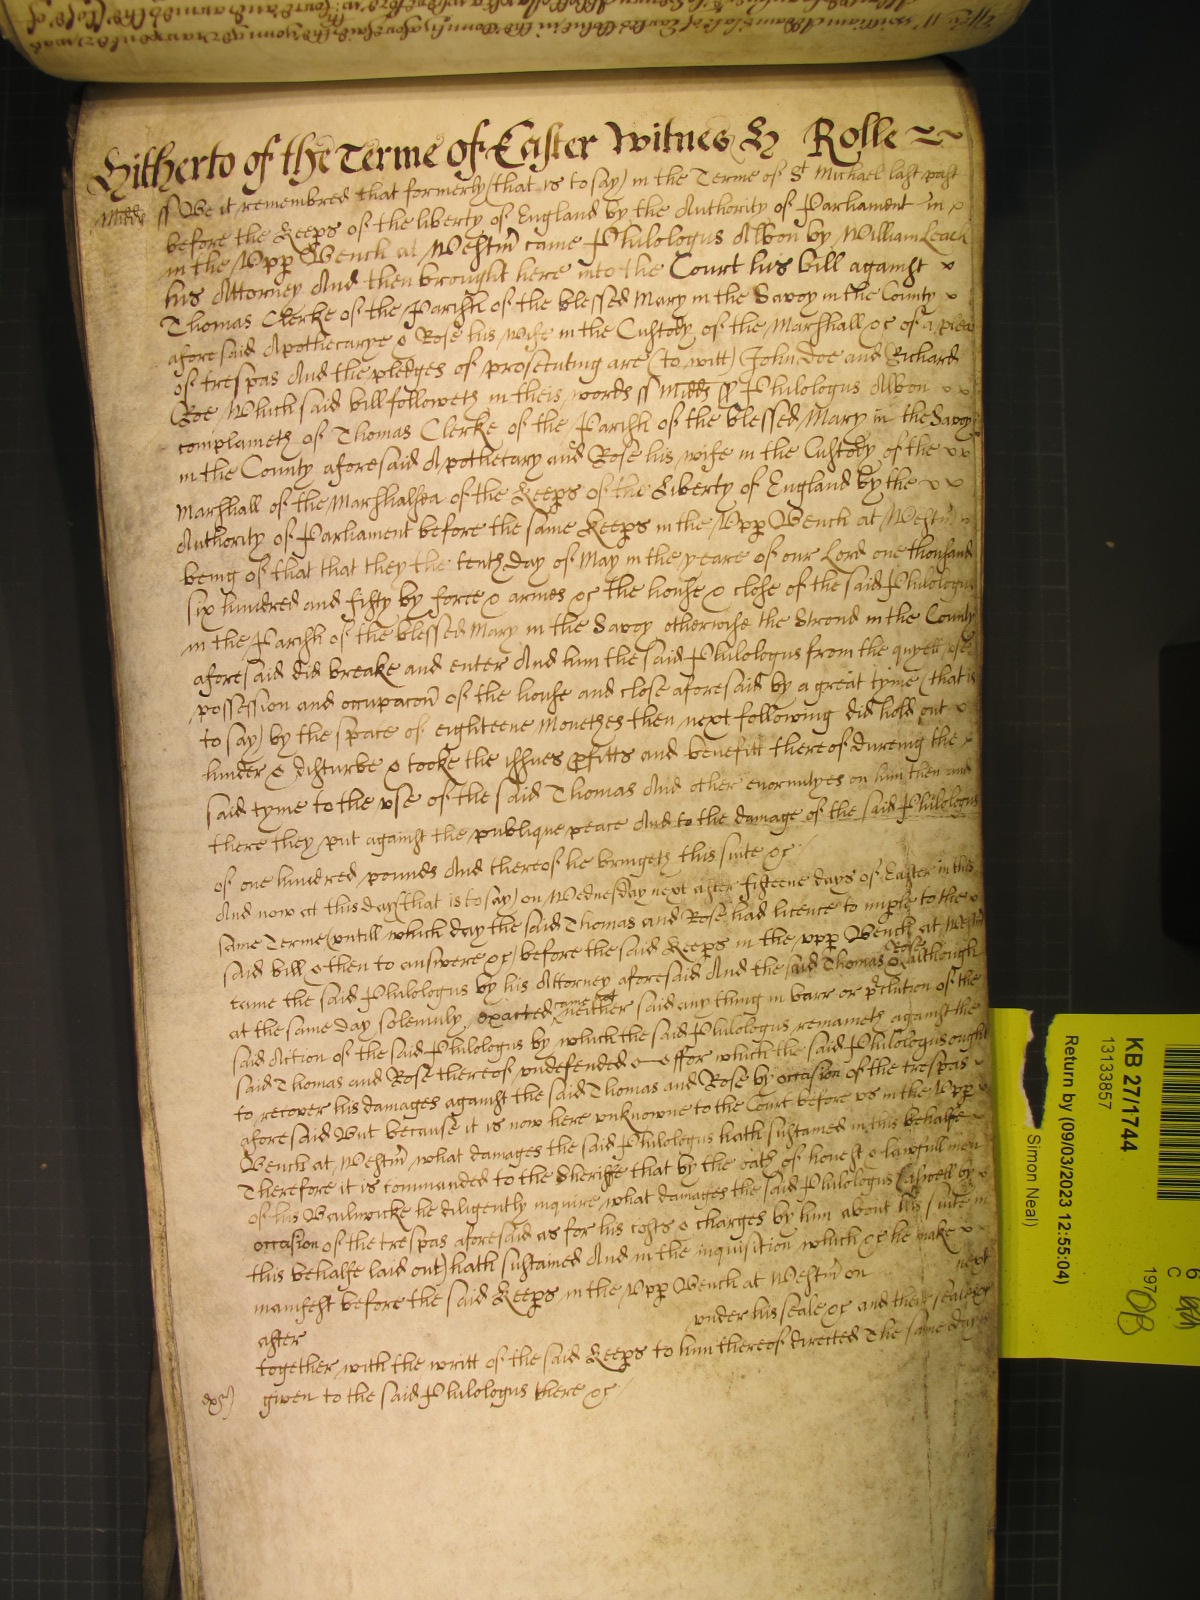 Hitherto of the Terme of Easter Witnes H Rolle
Midds ss Be it remembred that formerly (that is to say) in the Terme of St Michael last past
before the Keeps of the liberty of England by the Authority of Parliament in
in the Upp Bench at Westm came Philologus Albon by William Leach
his Attorney And then brought here into the Court his bill against
Thomas Clerke of the Parish of the blessed Mary in the Savoy in the County
aforesaid Apothecarye & Rose his wife in the Custody of the Marshall &c of a plea
of trespas And the pledges of prosecuting are (to witt) John Doe and Richard
Roe, Which said bill followeth in theis words ss Midds ss Philologus Albon
complaineth of Thomas Clerke of the Parish of the blessed Mary in the Savoy
in the County aforesaid Apothecary and Rose his wife in the Custody of the
Marshall of the Marshalsea of the Keeps of the Liberty of England by the
Authority of Parliament before the same Keeps in the Upp Bench at Westm
being of that that they the tenth day of May in the yeare of our Lord one thousand
six hundred and fifty by force & armes &c the house & close of the said Philologus
in the Parish of the blessed Mary in the Savoy otherwise the Strond in the County
aforesaid did breake and enter And him the said Philologus from the quyett use
possession and occupacon of the house and close aforesaid by a great tyme (that is
to say) by the space of eighteene Monethes then next following did hold out
hinder & disturbe & tooke the issues pfitts and benefitt thereof dureing the
said tyme to the use of the said Thomas And other enormityes on him then and
there they put against the publique peace And to the damage of the said Philologus
of one hundred pounds And thereof he bringeth this suite &c
And now at this day (that is to say) on Wednesday next after fifteene days of Easter in this
same Terme (untill which day the said Thomas and Rose had licence to imple to the
said bill & then to answere &c) before the said Keeps in the upp Bench at Westm
came the said Philologus by his Attorney aforesaid And the said Thomas & Rose although
at the same day solemnly exacted came not neither said any thing in barr or pclution of the
said Action of the said Philologus by which the said Philologus remaineth against the
said Thomas and Rose thereof undefended ffor which the said Philologus ought
to recover his damages against the said Thomas and Rose by occasion of the trespas
aforesaid But because it is now here unknowne to the Court before us in the Upp
Bench at Westm what damages the said Philologus hath sustained in this behalfe
Therefore it is commanded to the Sheriffe that by the oath of honest & lawfull men
of his Bailiwicke he diligently inquire what damages the said Philologus (aswell by
occasion of the trespas aforesaid as for his costs & charges by him about his suite in
this behalfe laid out) hath sustained And in the inquisition which &c he make
manifest before the said Keeps in the Upp Bench at Westm on next
after under his seale &c and their seales &c
together with the writt of the said Keeps to him thereof directed The same day is
given to the said Philologus there &c
KB 27/1744
13133857
Return by (09/03/2023 12:55:04)
Simon Neal)
197
6
C